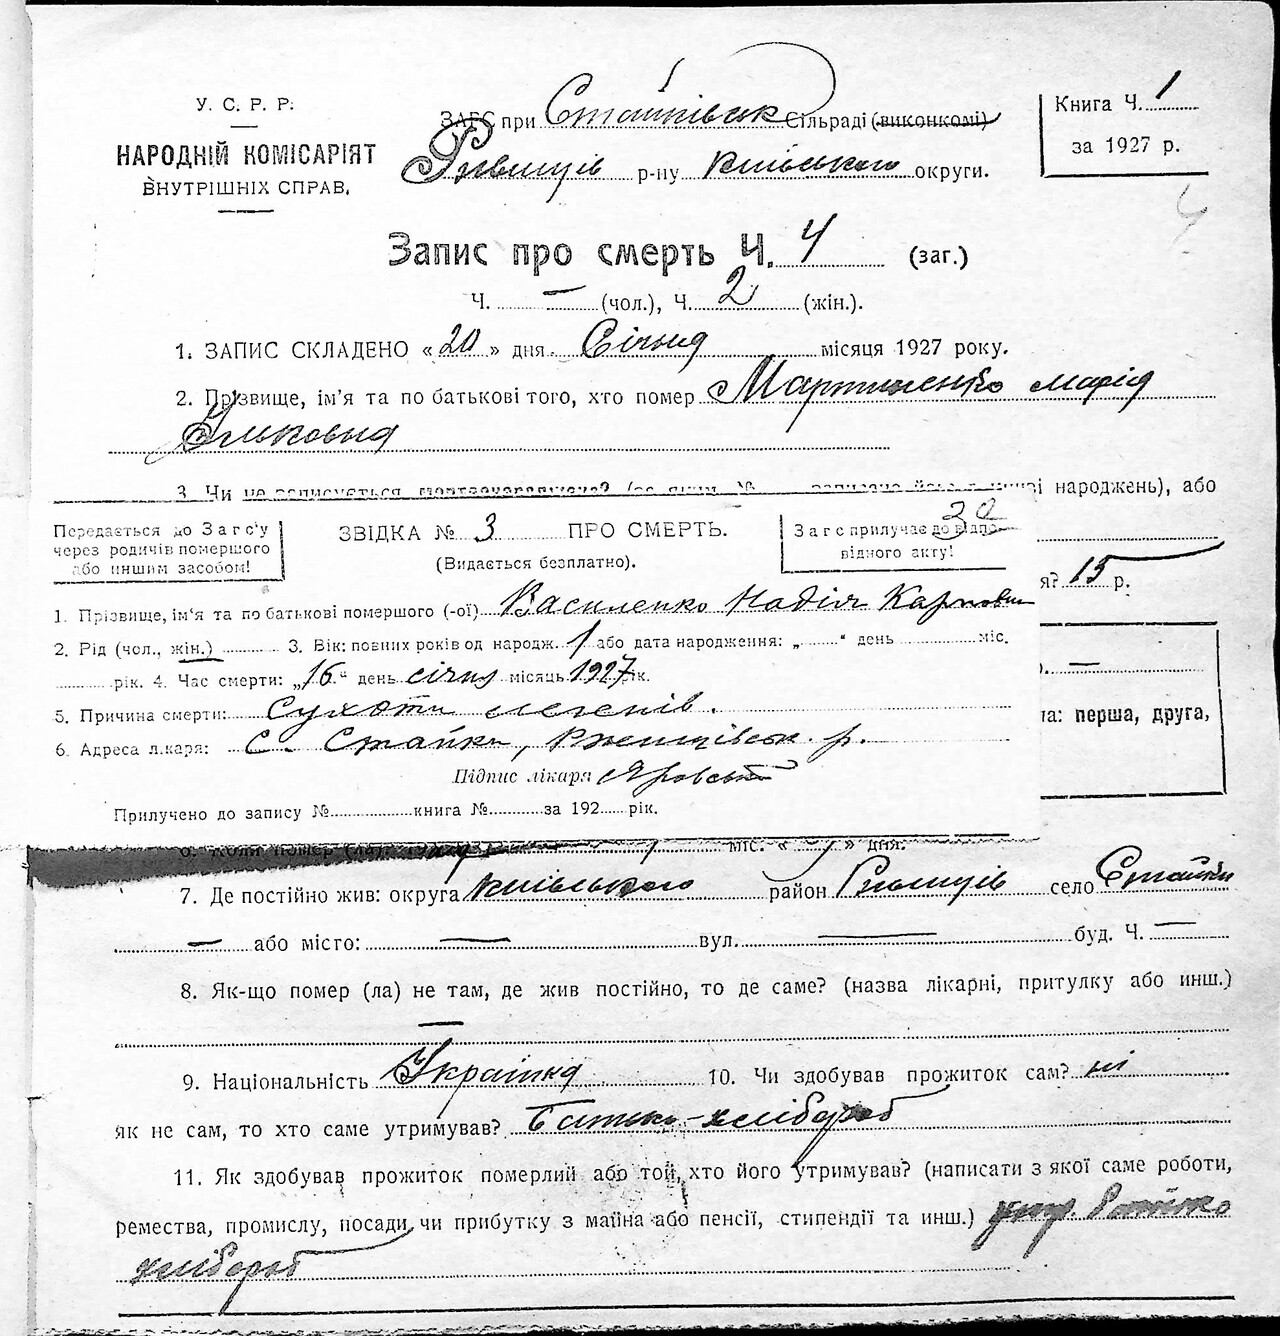 У. С. Р. Р.
НАРОДНІЙ КОМІСАРІЯТ
ВНУТРІШНІХ СПРАВ.
ЗАГС при Стайківськ Сільраді (виконкомі)
р-ну Київського округи.
Книга Ч. 1
за 1927 р.
4
Запис про смерть Ч. 4 (заг.)
Ч. — (чол.), Ч. 2 (жін.).
1. ЗАПИС СКЛАДЕНО «20» дня Січня місяця 1927 року.
2. Прізвище, ім'я та по батькові того, хто помер Мартиненко Марія
Ільковна
3. Чи не записується мертвонароджена? (за яким № народжень), або
Передається до Загс'у
через родичів помершого
або иншим засобом!
ЗВІДКА № 3 ПРО СМЕРТЬ.
(Видається безплатно).
20
Загс прилучає до відпо-
відного акту!
я? 15 р.
1. Прізвище, ім'я та по батькові помершого (-ої) Василенко Надія Карповна
2. Рід (чол., жін.) 3. Вік: повних років од народж. 1 або дата народження: „ “ день міс.
рік. 4. Час смерти: „16“ день січня місяць 1927 рік.
5. Причина смерти: Сухоти легенів.
6. Адреса лікаря: с. Стайки, Ржищівськ. р.
Підпис лікаря Яровський
Прилучено до запису № книга № за 192 рік.
на: перша, друга,
міс. « » дня.
7. Де постійно жив: округа Київського район Ржищів село Стайки
— або місто: — вул. — буд. Ч. —
8. Як-що помер (ла) не там, де жив постійно, то де саме? (назва лікарні, притулку або инш.)
—
9. Національність Українка 10. Чи здобував прожиток сам? ні
як не сам, то хто саме утримував? Батько-хлібороб
11. Як здобував прожиток померлий або той, хто його утримував? (написати з якої саме роботи,
ремества, промислу, посади, чи прибутку з майна або пенсії, стипендії та инш.) утр. батько
хлібороб